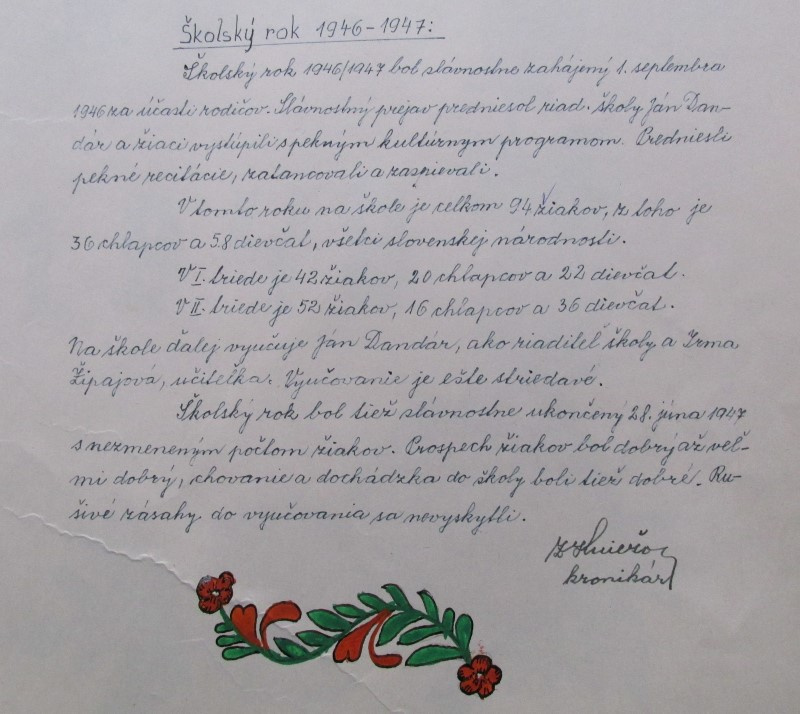 Školský rok 1946-1947:
Školský rok 1946/1947 bol slávnostne zahájený 1. septembra
1946 za účasti rodičov. Slávnostný prejav predniesol riad. školy Ján Dan-
dár a žiaci vystúpili s pekným kultúrnym programom. Predniesli
pekné recitácie, zatancovali a zaspievali.
V tomto roku na škole je celkom 94 žiakov, z toho je
36 chlapcov a 58 dievčat, všetci slovenskej národnosti.
V I. triede je 42 žiakov, 20 chlapcov a 22 dievčat.
V II. triede je 52 žiakov, 16 chlapcov a 36 dievčat.
Na škole ďalej vyučuje Ján Dandár, ako riaditeľ školy a Irma
Žipajová, učiteľka. Vyučovanie je ešte striedavé.
Školský rok bol tiež slávnostne ukončený 28. júna 1947
s nezmeneným počtom žiakov. Prospech žiakov bol dobrý až veľ-
mi dobrý, chovanie a dochádzka do školy boli tiež dobré. Ru-
šivé zásahy do vyučovania sa nevyskytli.
kronikár